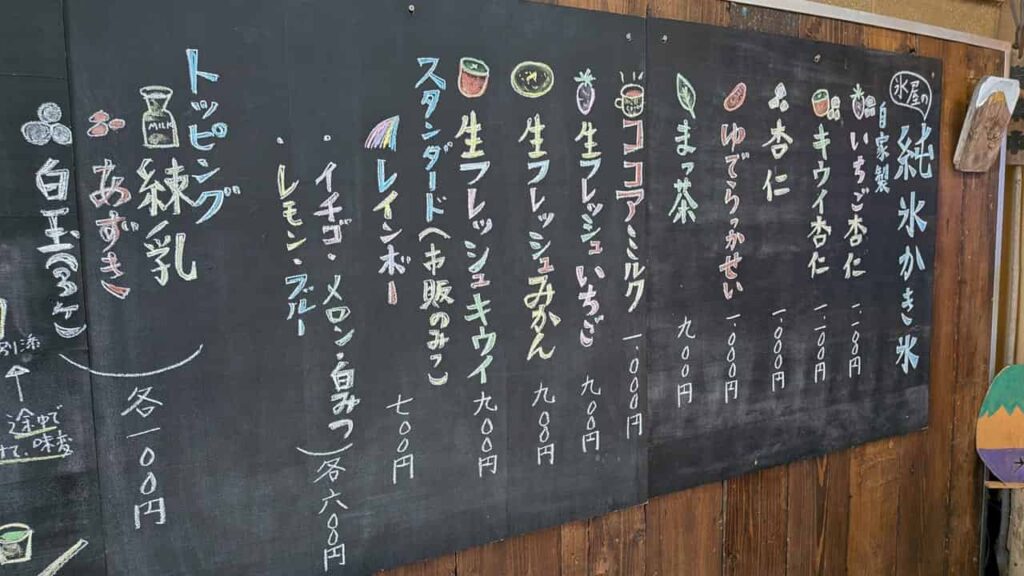 氷屋の
純氷かき氷
自家製
いちご杏仁 一、一〇〇円
キウイ杏仁 一、一〇〇円
杏仁 一、〇〇〇円
ゆでらっかせい 一、〇〇〇円
まっ茶 九〇〇円
ココアミルク 一、〇〇〇円
生フレッシュいちご 九〇〇円
生フレッシュみかん 九〇〇円
生フレッシュキウイ 九〇〇円
スタンダード(市販のみつ)
レインボー 七〇〇円
・イチゴ・メロン・白みつ
・レモン・ブルー
各六〇〇円
トッピング
MILK
練乳
あずき
白玉(3ケ)
各一〇〇円
途中で
味変